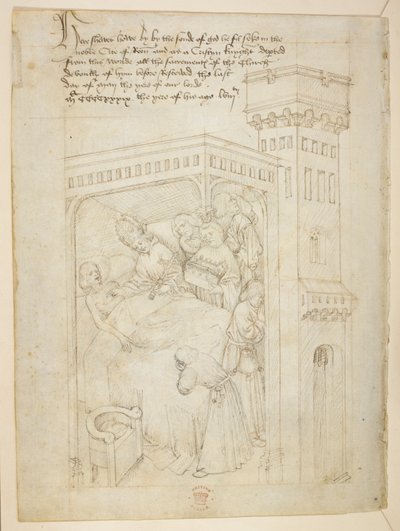 Here shewes howe by the sonde of god he fil seke in the
noble Cite of Roan and as a Cristyn knyght depted
from this worlde all the sacrements of the Church
devoutly of hym before Resceived the last
day of the yere of our lorde
CCCCxxxix the yere of his age